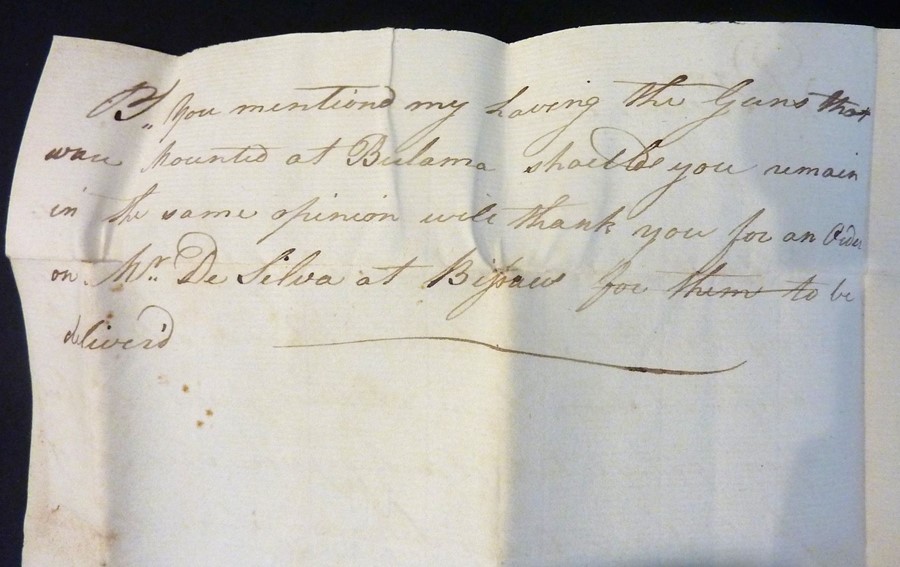 You mentiond my having the Guns that
was Mounted at Bulama should you remain
in the same opinion will thank you for an Order
on Mr. De Silva at Bissaw for them to be
deliver'd